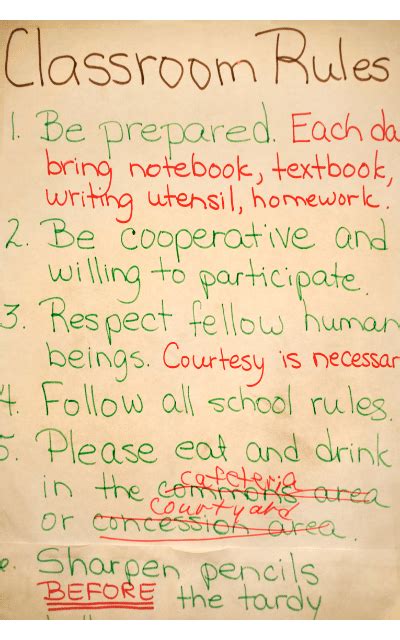 Classroom Rules
1. Be prepared. Each da
bring notebook, textbook,
writing utensil, homework.
2. Be cooperative and
willing to participate.
3. Respect fellow human
beings. Courtesy is necessar
4. Follow all school rules.
5. Please eat and drink
cafeteria
in the commons area
courtyard
or concession area.
Sharpen pencils
BEFORE the tardy